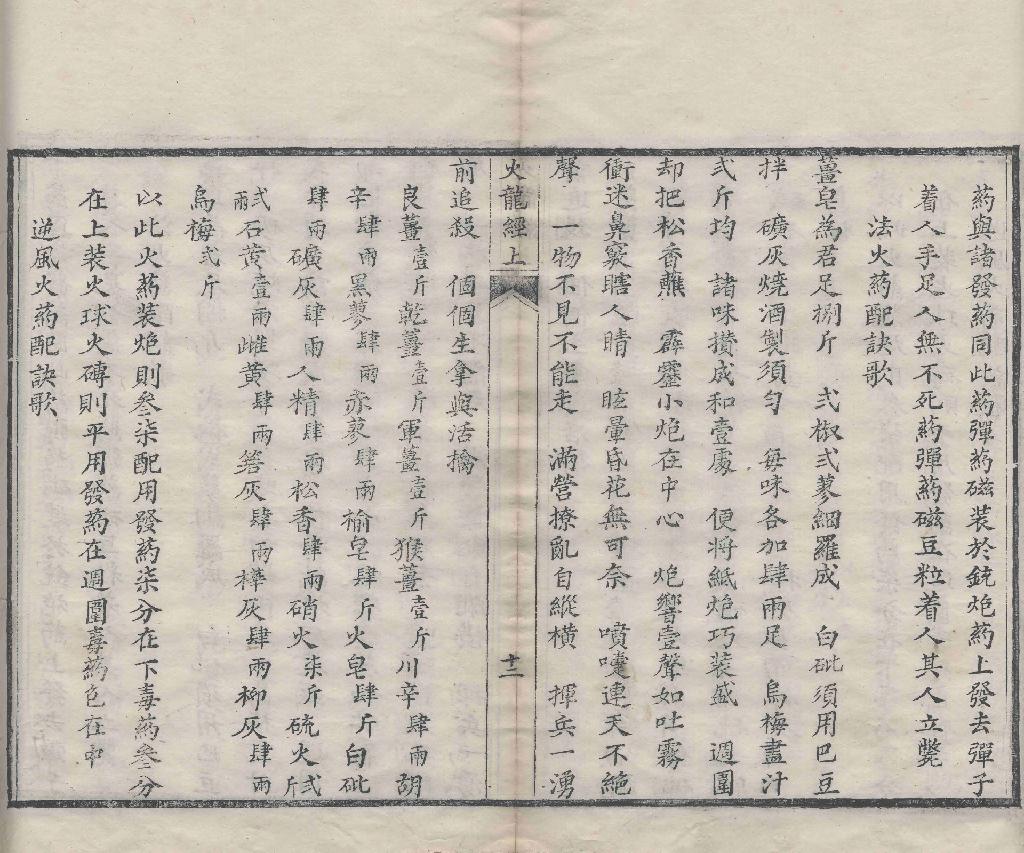 葯與諸發葯同此葯彈葯磁装於銃炮葯上發去彈子
着人手足人無不死葯彈葯磁豆粒着人其人立斃
法火葯配訣歌
薑皂為君足捌斤　弍椒弍蓼細羅成　白砒須用巴豆
拌　礦灰燒酒製須勻　每味各加肆兩足　烏梅盡汁
弍斤均　諸味攢成和壹處　便將紙炮巧装盛　週圍
却把松香蘸　霹靂小炮在中心　炮響壹聲如吐霧
衝迷鼻竅瞎人睛　眩暈昏花無可奈　噴嚏連天不絕
聲　一物不見不能走　滿營撩亂自縱橫　揮兵一湧
火龍經上　十二
前追殺　個個生拿與活擒
良薑壹斤乾薑壹斤軍薑壹斤猴薑壹斤川辛肆兩胡
辛肆兩黑蓼肆兩赤蓼肆兩榆皂肆斤火皂肆斤白砒
肆兩礦灰肆兩人精肆兩松香肆兩硝火柒斤硫火弍斤
弍兩石黃壹兩雌黃肆兩箬灰肆兩樺灰肆兩柳灰肆兩
烏梅弍斤
以此火葯装炮則叄柒配用發葯柒分在下毒葯叄分
在上装火球火磚則平用發葯在週圍毒葯包在中
逆風火葯配訣歌